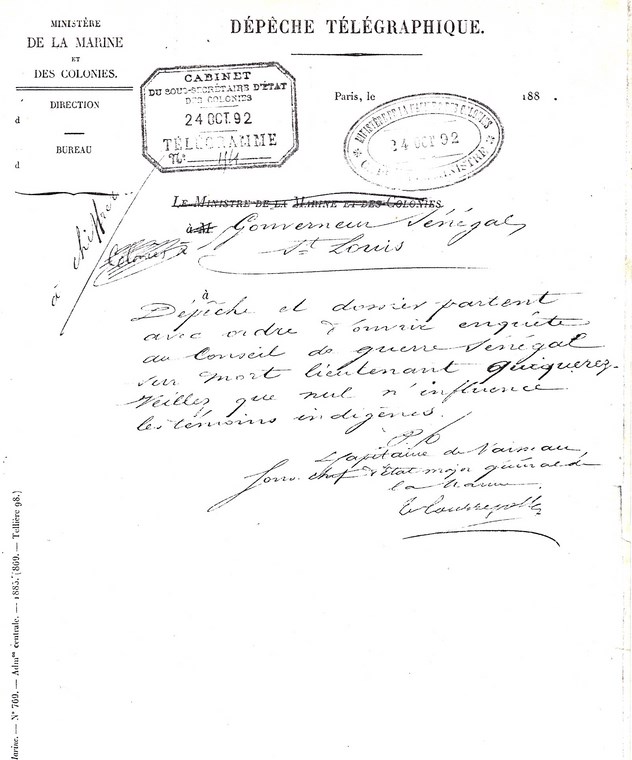 MINISTÈRE
DE LA MARINE
ET
DES COLONIES.
DIRECTION
d
BUREAU
d
DÉPÊCHE TÉLÉGRAPHIQUE.
CABINET
DU SOUS-SECRÉTAIRE D'ÉTAT
DES COLONIES
24 OCT. 92
TÉLÉGRAMME
N°
Paris, le 188 .
24 OCT 92
LE MINISTRE DE LA MARINE ET DES COLONIES
à M Gouverneur Sénégal,
St Louis
à chiffrer
à
Dépêche et dossier partent
avec ordre d'ouvrir enquête
au Conseil de guerre Sénégal
sur mort lieutenant Quiquerez.
Veillez que nul n'influence
les témoins indigènes.
P.O
Le Capitaine de Vaisseau,
Sous-chef d'État major général de
la Marine
Marine. — N° 769. — Admon centrale. — 1885. [869. — Tellière 98.]